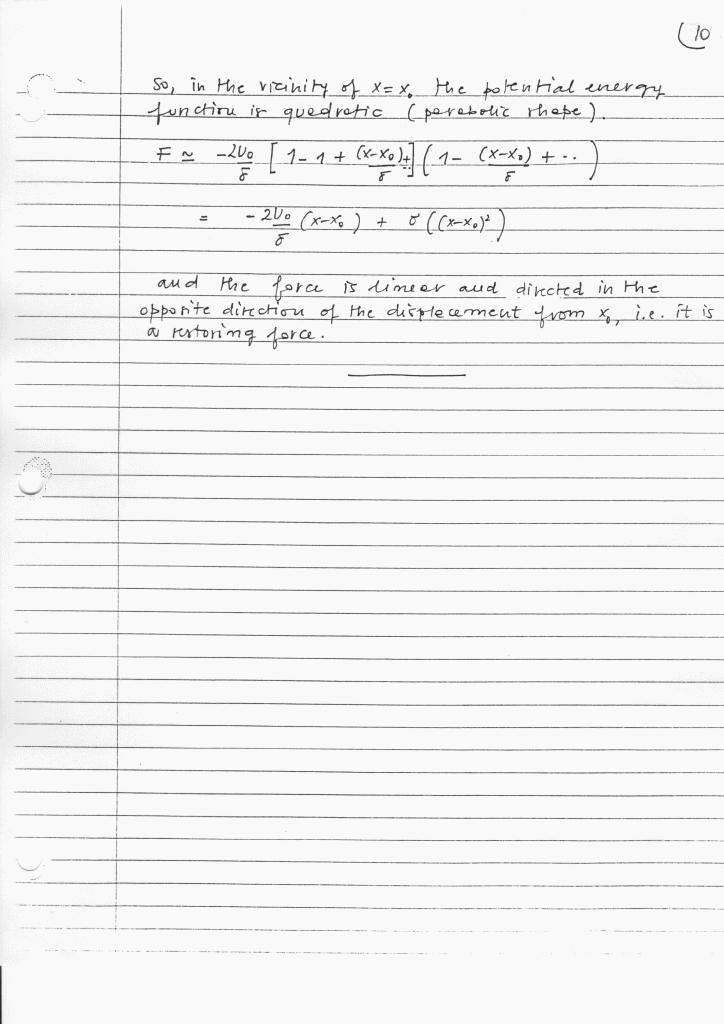 10
So, in the vicinity of x=x₀ the potential energy
function is quadratic (parabolic shape).
F ≃ -2U₀/δ [1-1+(x-x₀)/δ+..](1-(x-x₀)/δ+..)
= -2U₀/δ (x-x₀) + σ((x-x₀)²)
and the force is linear and directed in the
opposite direction of the displacement from x₀, i.e. it is
a restoring force.